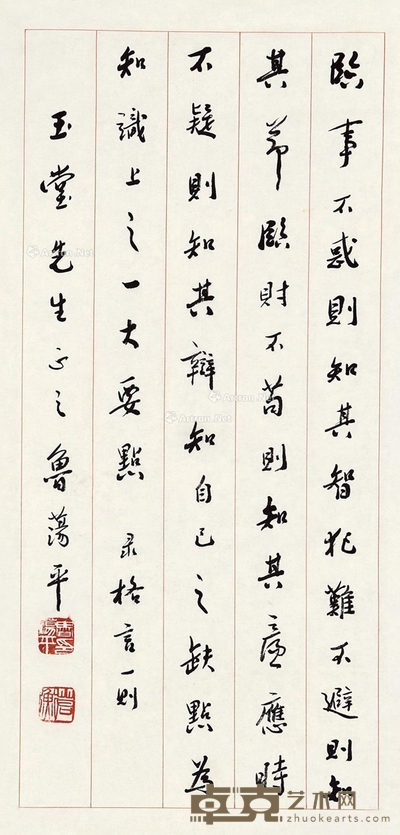 臨事不惑則知其智犯難不避則知
其節臨財不苟則知其廉應時
不疑則知其辯知自己之缺點為
知識上之一大要點 录格言一則
玉堂先生正之魯蕩平
卓克艺术网
www.zhuokearts.com
Artron.Net